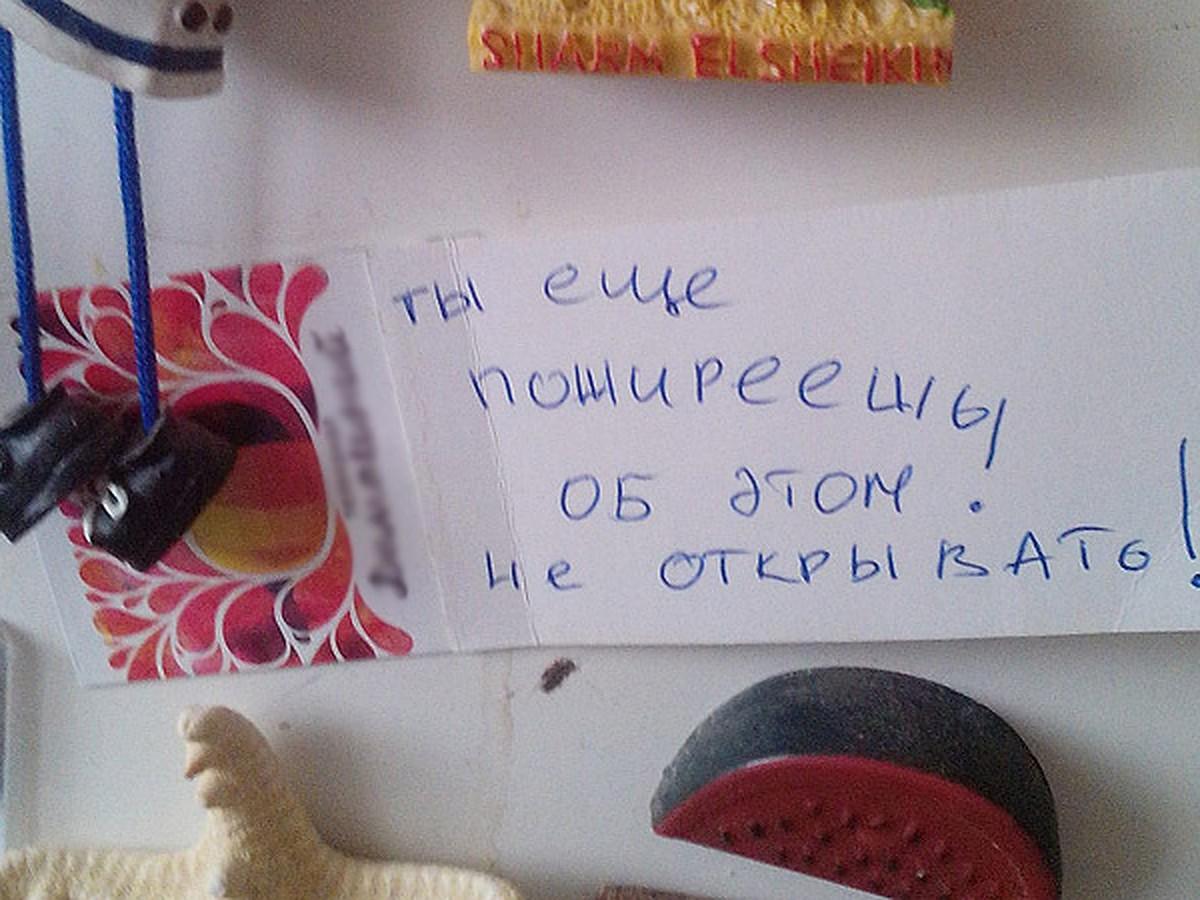 SHARM ELSHEIKH
ты еще
пожиреешь,
ОБ ЭТОМ.
Не ОТКРЫВАТЬ!